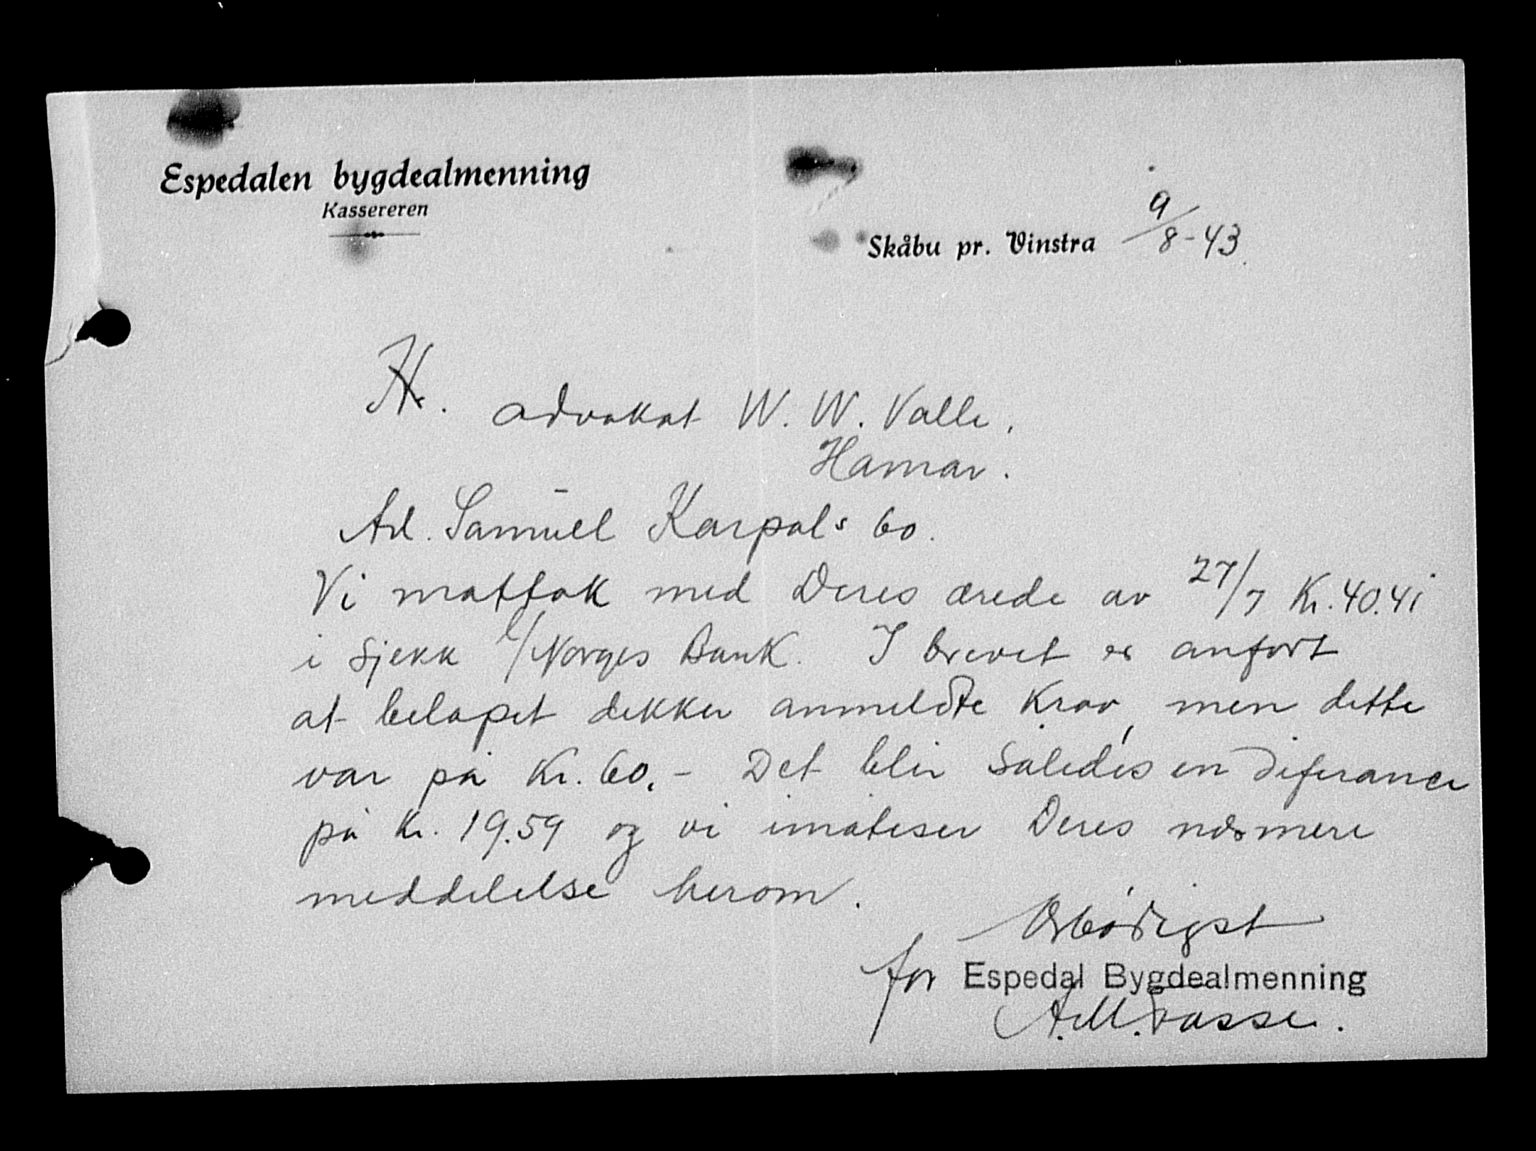 Espedalen bygdealmenning
Kassereren
Skåbu pr. Vinstra 9/8-43.
Hr. advokat W. W. Valle.
Hamar.
Ad. Samuel Karpols bo.
Vi mottok med Deres ærede av 27/7 Kr. 40.41
i sjekk 1/Norges Bank. I brevet er anført
at beløpet dekker anmeldte krav, men dette
var på Kr. 60.- Det blir således en diferance
på kr. 19.59 og vi imøteser Deres nærmere
meddelelse herom.
Ærbødigst
for Espedal Bygdealmenning